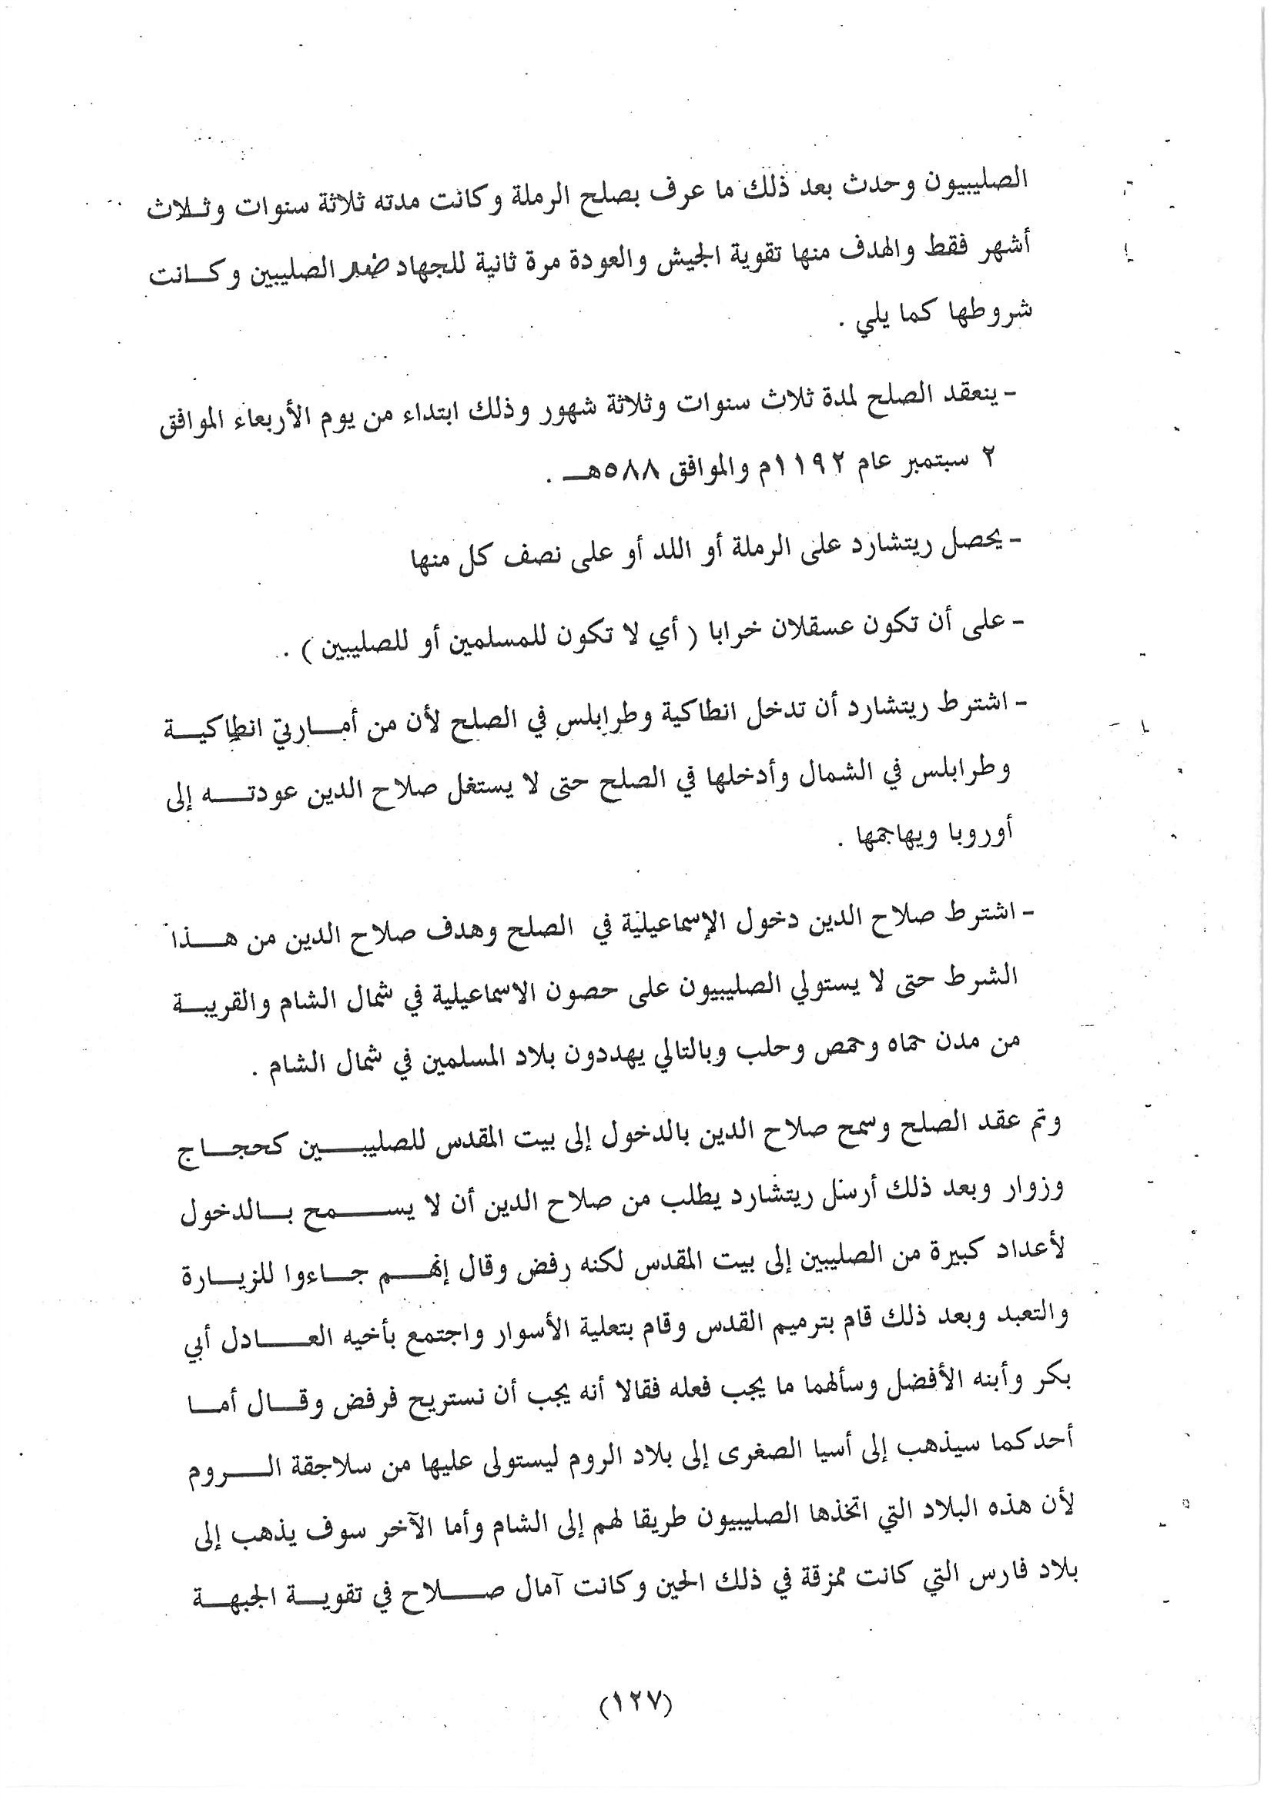 الصليبيون وحدث بعد ذلك ما عرف بصلح الرملة وكانت مدته ثلاثة سنوات وثلاث
أشهر فقط والهدف منها تقوية الجيش والعودة مرة ثانية للجهاد ضد الصليبين وكانت
شروطها كما يلي .
- ينعقد الصلح لمدة ثلاث سنوات وثلاثة شهور وذلك ابتداء من يوم الأربعاء الموافق
٢ سبتمبر عام ١١٩٢م والموافق ٥٨٨هـ .
- يحصل ريتشارد على الرملة أو اللد أو على نصف كل منها
- على أن تكون عسقلان خرابا ( أي لا تكون للمسلمين أو للصليبين ) .
- اشترط ريتشارد أن تدخل انطاكية وطرابلس في الصلح لأن من أمارتي انطاكية
وطرابلس في الشمال وأدخلها في الصلح حتى لا يستغل صلاح الدين عودته إلى
أوروبا ويهاجمها .
- اشترط صلاح الدين دخول الإسماعيلية في الصلح وهدف صلاح الدين من هذا
الشرط حتى لا يستولي الصليبيون على حصون الاسماعيلية في شمال الشام والقريبة
من مدن حماه وحمص وحلب وبالتالي يهددون بلاد المسلمين في شمال الشام .
وتم عقد الصلح وسمح صلاح الدين بالدخول إلى بيت المقدس للصليبين كحجاج
وزوار وبعد ذلك أرسل ريتشارد يطلب من صلاح الدين أن لا يسمح بالدخول
لأعداد كبيرة من الصليبين إلى بيت المقدس لكنه رفض وقال إنهم جاءوا للزيارة
والتعبد وبعد ذلك قام بترميم القدس وقام بتعلية الأسوار واجتمع بأخيه العادل أبي
بكر وأبنه الأفضل وسألهما ما يجب فعله فقالا أنه يجب أن نستريح فرفض وقال أما
أحدكما سيذهب إلى أسيا الصغرى إلى بلاد الروم ليستولى عليها من سلاجقة الروم
لأن هذه البلاد التي اتخذها الصليبيون طريقا لهم إلى الشام وأما الآخر سوف يذهب إلى
بلاد فارس التي كانت ممزقة في ذلك الحين وكانت آمال صلاح في تقوية الجبهة
(١٢٧)